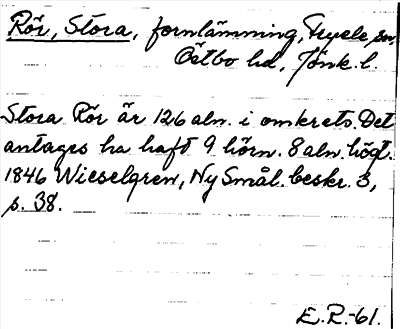 Rör, Stora, fornlämning, Tryele sn,
Östbo hd, Jönk. l.
Stora Rör är 126 aln. i omkrets. Det
antages ha haft 9 hörn. 8 aln. högt.
1846 Wieselgren, Ny Smål. beskr. 3,
s. 38.
E.R.-61.